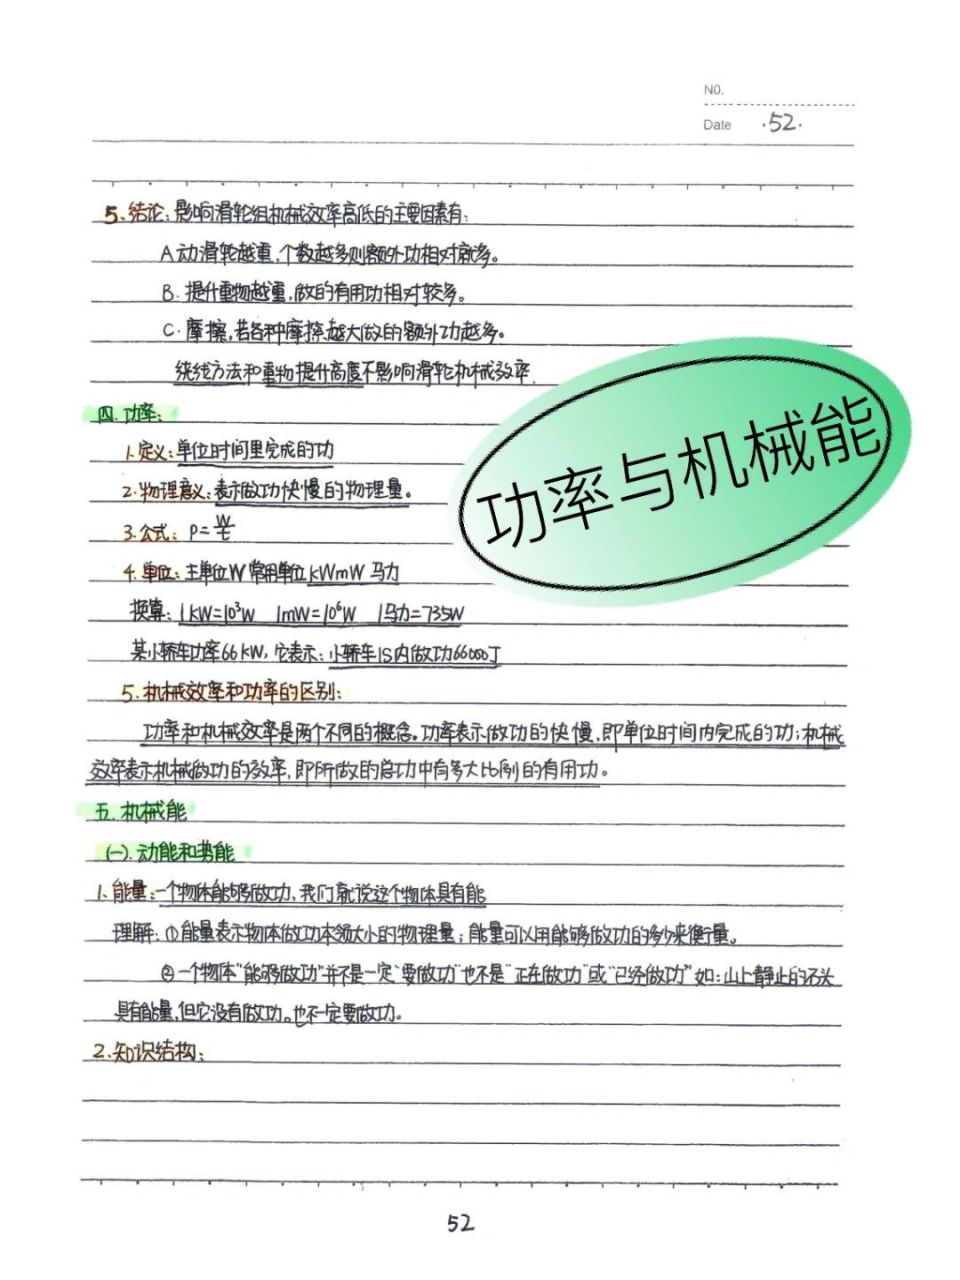 NO.
Date ·52·
5.结论:影响滑轮组机械效率高低的主要因素有:
A动滑轮越重,个数越多则额外功相对就多。
B.提升重物越重,做的有用功相对较多。
C.摩擦,若各种摩擦越大做的额外功越多。
绕线方法和重物提升高度不影响滑轮机械效率.
四.功率:
功率与机械能
1.定义:单位时间里完成的功
2.物理意义:表示做功快慢的物理量。
3.公式: P=W/t
4.单位:主单位W 常用单位kWmW 马力
换算:1kW=10³W 1mW=10⁶W 1马力=735W
某小轿车功率66kW,它表示:小轿车1S内做功66000J
5.机械效率和功率的区别:
功率和机械效率是两个不同的概念。功率表示做功的快慢,即单位时间内完成的功;机械
效率表示机械做功的效率,即所做的总功中有多大比例的有用功。
五.机械能
(一).动能和势能
1.能量:一个物体能够做功,我们就说这个物体具有能
理解:①能量表示物体做功本领大小的物理量;能量可以用能够做功的多少来衡量。
②一个物体"能够做功"并不是一定"要做功"也不是"正在做功"或"已经做功"如:山上静止的石头
具有能量,但它没有做功。也不一定要做功。
2.知识结构:
52